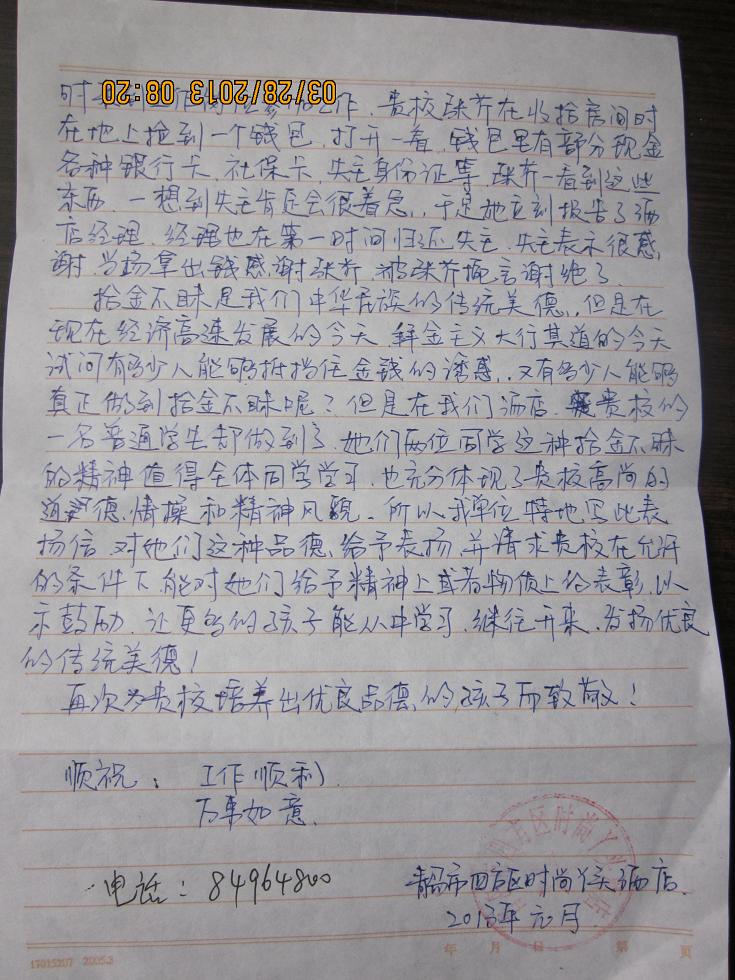 03/28/2013 08:20
时 工作，贵校珠芥在收拾房间时
在地上捡到一个钱包，打开一看，钱包里有部分现金
各种银行卡、社保卡、失主身份证等，珠芥一看到这些
东西，一想到失主肯定会很着急，于是她立刻报告了酒
店经理，经理也在第一时间归还失主，失主表示很感
谢，当场拿出钱感谢珠芥，被珠芥婉言谢绝了。
拾金不昧是我们中华民族的传统美德，但是在
现在经济高速发展的今天，拜金主义大行其道的今天
试问有多少人能够抵挡住金钱的诱惑，又有多少人能够
真正做到拾金不昧呢？但是在我们酒店，贵校的
一名普通学生却做到了，她们两位同学这种拾金不昧
的精神值得全体同学学习，也充分体现了贵校高尚的
道德情操和精神风貌。所以我单位特地写此表
扬信，对她们这种品德给予表扬，并请求贵校在允许
的条件下能对她们给予精神上或者物质上的表彰，以
示鼓励，让更多的孩子能从中学习，继往开来，发扬优良
的传统美德！
再次为贵校培养出优良品德的孩子而致敬！
顺祝：工作顺利
万事如意
电话：84964800
青岛市四方区时尚 酒店
2013年元月
年 月 日 第 页
17015207 2005.3